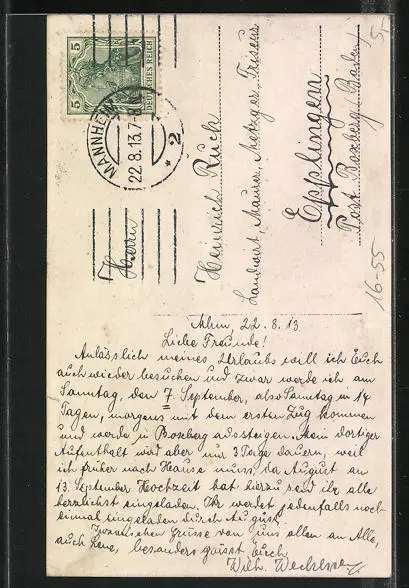 5 DEUTSCHES REICH 5
MANNHEIM
22.8.13.7-8
* 2
Herrn
Heinrich Ruck
Landwirt, Maurer, Metzger, Friseur
Epplingen
Post Boxberg (Baden)
5,-
16-55
22.8.13
Liebe Freunde!
Anlässlich meines Urlaubs will ich Euch
auch wieder besuchen und zwar werde ich am
Sonntag, den 7. September, also Sonntag in 14
Tagen, morgens mit dem ersten Zug kommen
und werde in Boxberg aussteigen. Mein dortiger
Aufenthalt wird aber nur 3 Tage dauern, weil
ich früher nach Hause muss, da August am
13. September Hochzeit hat hierzu seid ihr alle
herzlichst eingeladen. Ihr werdet jedenfalls noch-
einmal eingeladen durch August.
Inzwischen Grüsse von uns allen an Alle,
auch Lene, besonders grüsst Euch
Wilh.